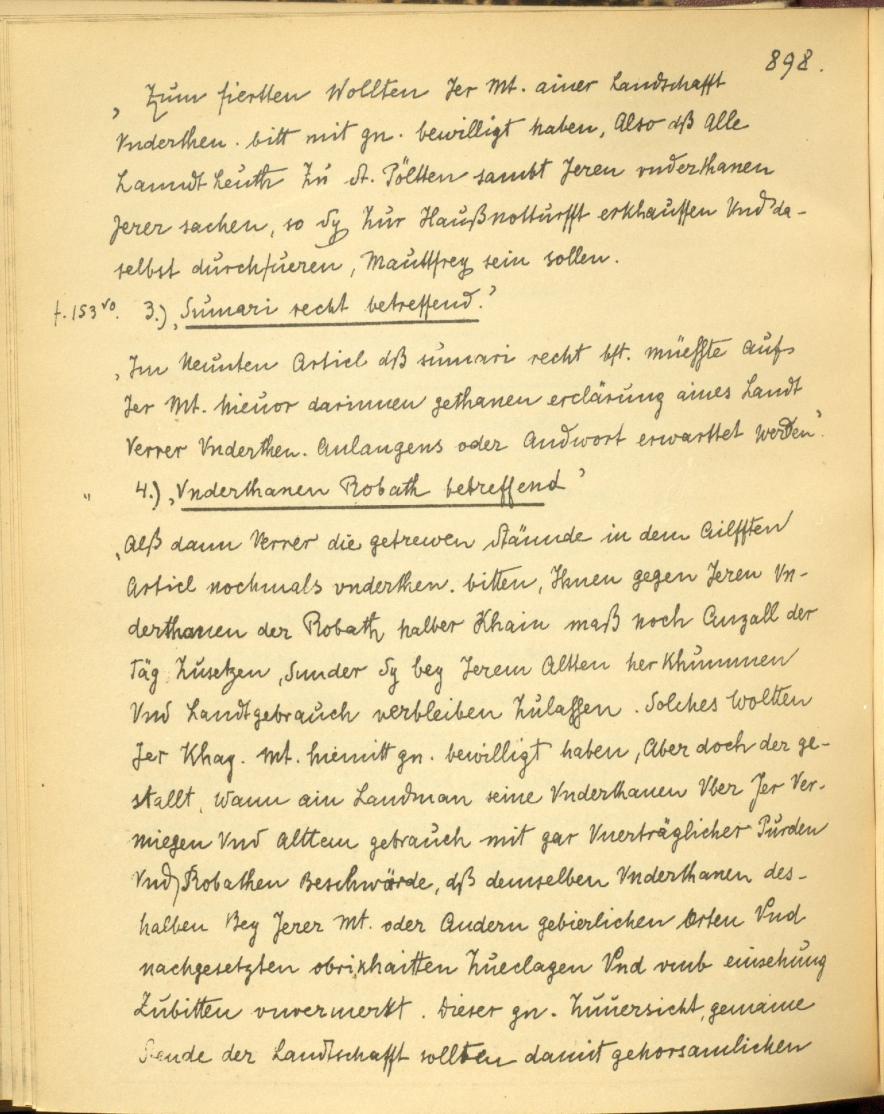 898.
„ Zum fiertten Wollten Jer Mt. ainer Landschafft
Vnderthen. bitt mit gn. bewilligt haben, Also dß Alle
Lanndt Leuth Zu St. Pöltten sambt Jeren vnderthanen
Jerer sachen, so Sy Zur Haußnotturfft erkhauffen Vnd da-
selbst durchfueren, Mauttfrey sein sollen.
f. 153 vo. 3.) „Sumari recht betreffend.“
„Im Neunten Articl dß sumari recht bft. müeste auf
Jer Mt. hieuor darinnen gethanen erclärung aines Landt
Verrer Vnderthen. Anlangens oder Andwort erwarttet werden“.
" 4.) „Vnderthanen Robath betreffend“
„Alß dann Verrer die getrewen Stännde in dem Ailfften
Articl nochmals vnderthen. bitten, Ihnen gegen Jeren Vn-
derthanen der Robath halber Khain maß noch Anzall der
Täg Zusetzen, Sunder Sy bey Jerem Altten herkhummen
Vnd Landtgebrauch verbleiben Zulassen. Solches Wollten
Jer Khay. Mt. hiemitt gn. bewilligt haben, Aber doch der ge-
stallt, Wann ain Landman seine Vnderthanen Vber Jer Ver-
miegen Vnd Alttem gebrauch mit gar Vnerträglicher Purden
Vnd Robathen Beschwärde, dß demselben Vnderthanen des-
halben Bey Jerer Mt. oder Andern gebierlichen Orten Vnd
nachgesetzten obrikhaitten Zueclagen Vnd vmb einsehung
Zubitten vnvermerkt. Dieser gn. Zuuersicht, gemaine
Stende der Landtschafft sollten damit gehorsamlichen